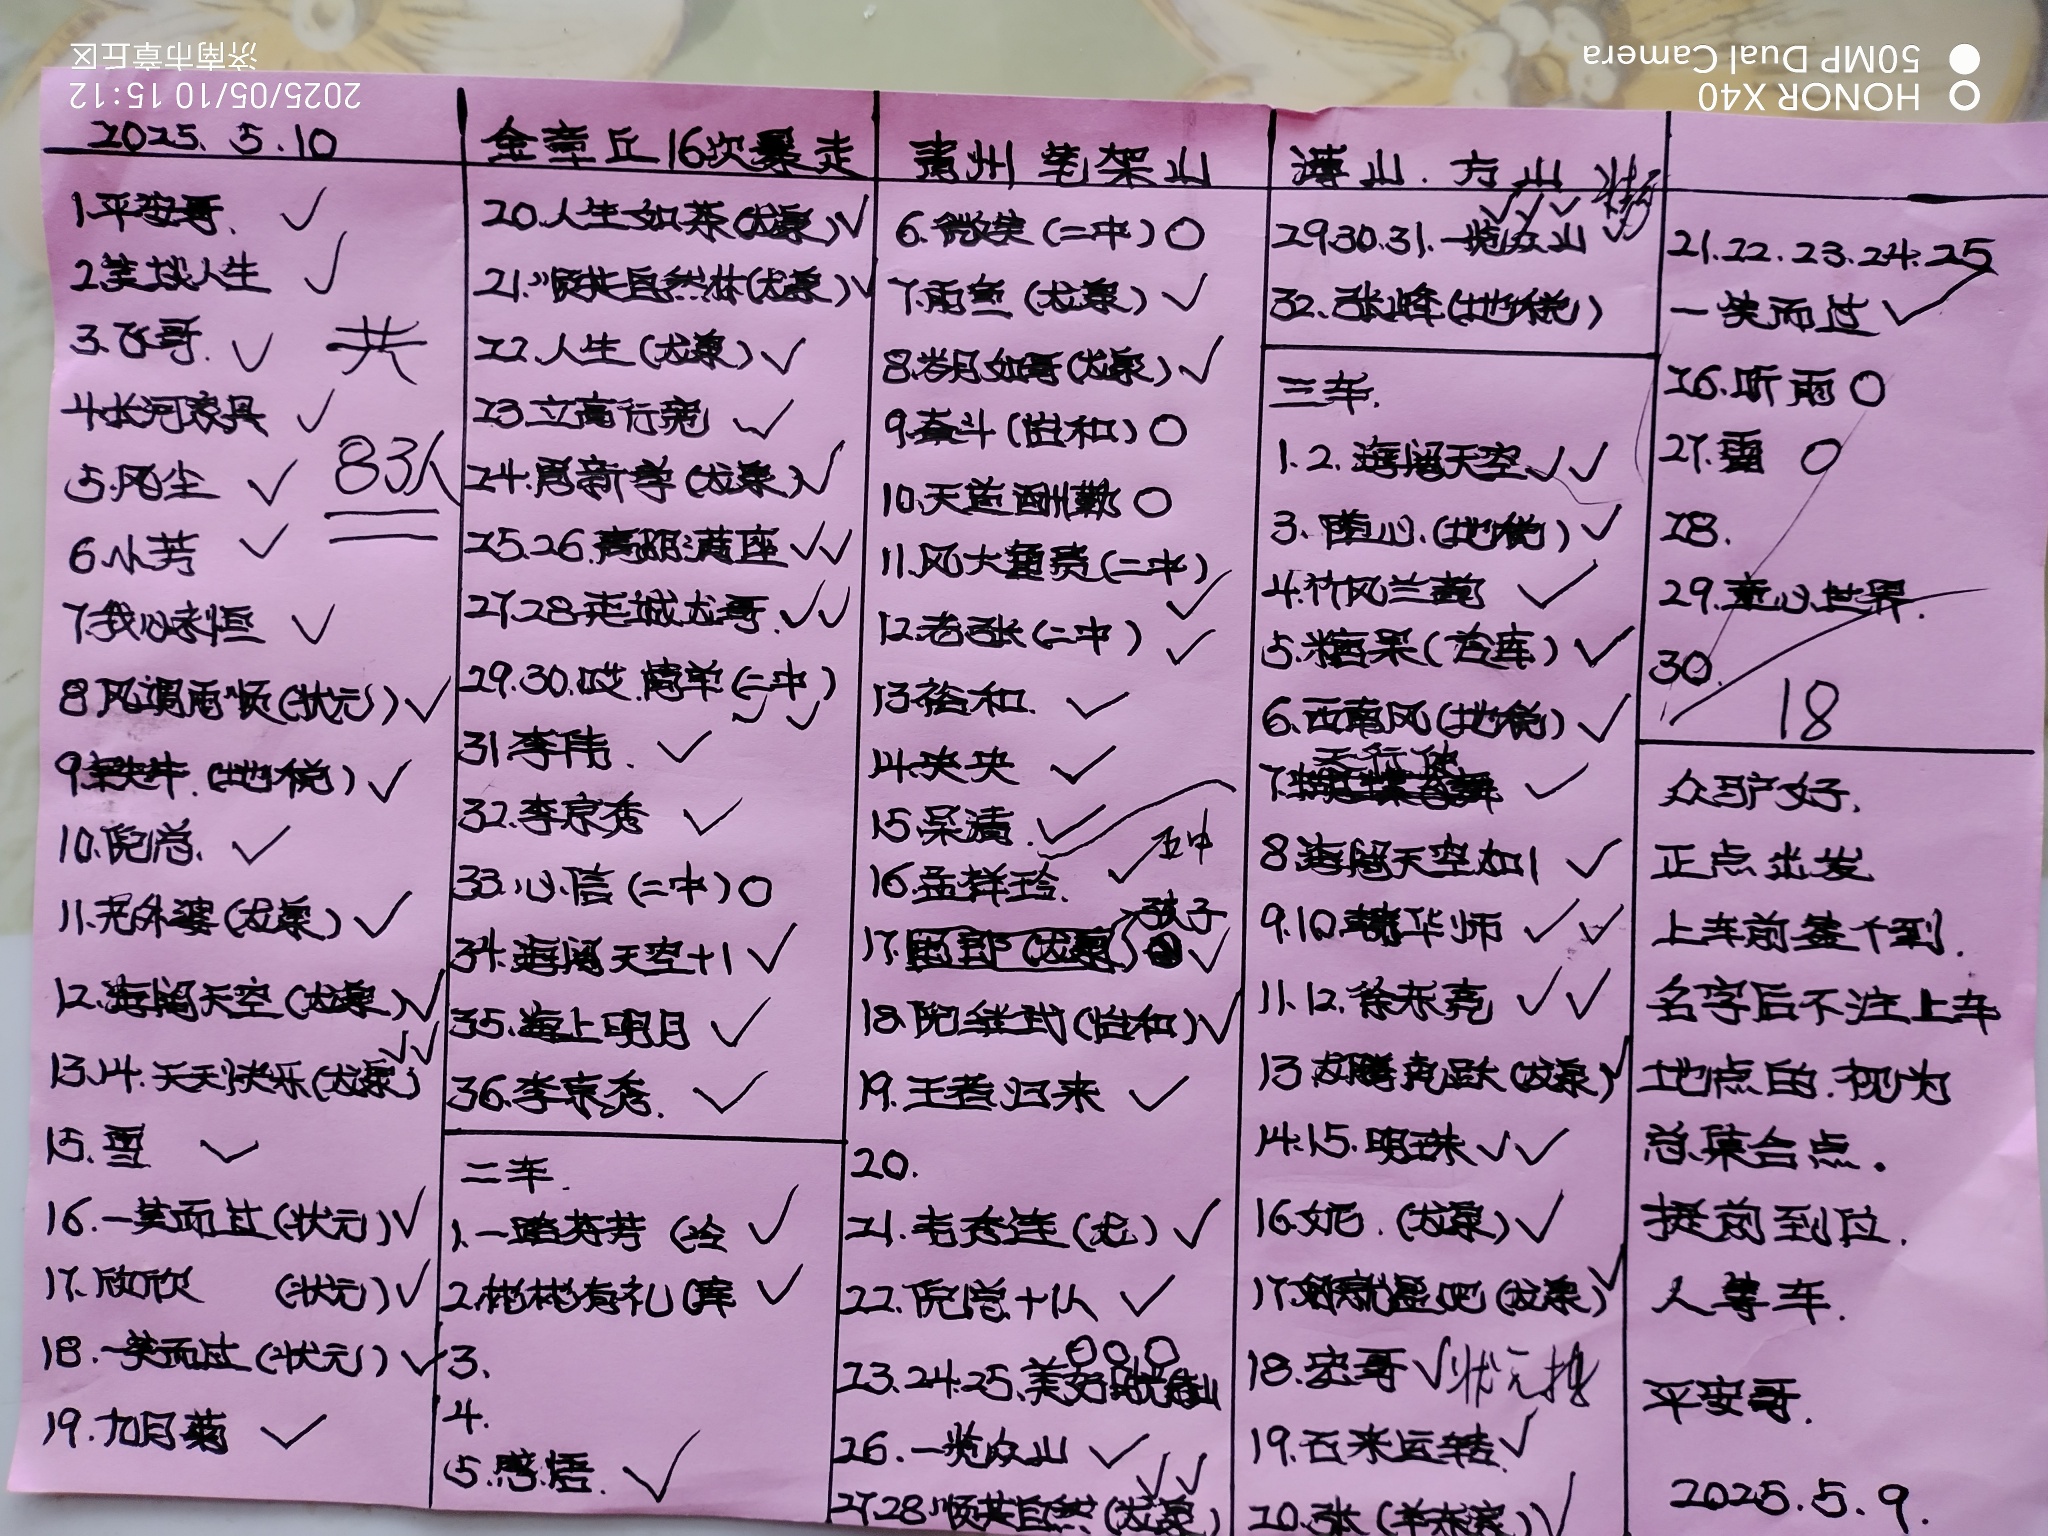 HONOR X40
50MP Dual Camera
2025/05/10 15:12
济南市章丘区
2025.5.10
1.平安哥. ✓
2.笑战人生 ✓
3.飞哥. ✓
共
4.长河家具 ✓
83人
5.风尘 ✓
6.小芳 ✓
7.我心永恒 ✓
8.风调雨顺(状元) ✓
9.梁牛.(地税) ✓
10.倪总. ✓
11.老外婆(龙泉) ✓
12.海阔天空(龙泉) ✓
13.14.天天快乐(龙泉) ✓✓
15.雪 ✓
16.一笑而过(状元) ✓
17.欣欣 (状元) ✓
18.一笑而过(状元) ✓
19.九月菊 ✓
金章丘16次暴走
20.人生如茶(龙泉) ✓
21.顺其自然林(龙泉) ✓
22.人生(龙泉) ✓
23.立高行宽 ✓
24.周新学(龙泉) ✓
25.26.高朋满座 ✓✓
27.28.走城龙哥. ✓✓
29.30.哎.简单(二中) ✓✓
31.李伟. ✓
32.李宗秀 ✓
33.心信(二中) O
34.海阔天空+1 ✓
35.海上明月 ✓
36.李宗秀. ✓
二车.
1.一路芬芳(冶 ✓
2.彬彬有礼(库 ✓
3.
4.
5.感悟. ✓
青州 笔架山
6.微笑(二中) O
7.雨鱼(龙泉) ✓
8.岁月如哥(龙泉) ✓
9.奋斗(怡和) O
10.天道酬勤 O
11.风大(二中) ✓
12.老张(二中) ✓
13.裕和. ✓
14.央央 ✓
15.呆清. ✓
五中
16.孟祥玲. ✓
孩子
17.(龙泉) ✓
18.倪继武(怡和) ✓
19.王者归来 ✓
20.
21.韦秀连(龙) ✓
22.倪总+1人 ✓
23.24.25.美好 OOO
26.一览众山 ✓
27.28.顺其自然(龙泉) ✓✓
博山.方山
29.30.31.一览众山 ✓✓✓
32.张峰(地税)
三车.
1.2.海阔天空 ✓✓
3.随心.(地税) ✓
4.竹风兰韵 ✓
5.糖果(冶库) ✓
6.西南风(地税) ✓
7. ✓
8.海阔天空加1 ✓
9.10.华师 ✓✓
11.12.徐东亮 ✓✓
13.龙腾虎跃(龙泉) ✓
14.15.明珠 ✓✓
16.妮.(龙泉) ✓
17.(龙泉) ✓
18.宏哥 ✓ 状元
19.石来运转. ✓
20.张(羊 ✓
21.22.23.24.25
一笑而过 ✓
26.听雨 O
27.雷 O
28.
29.童心世界.
30.
18
众驴好.
正点出发
上车前签个到.
名字后不注上车
地点的.视为
总集合点.
提前到位.
人等车.
平安哥.
2025.5.9.